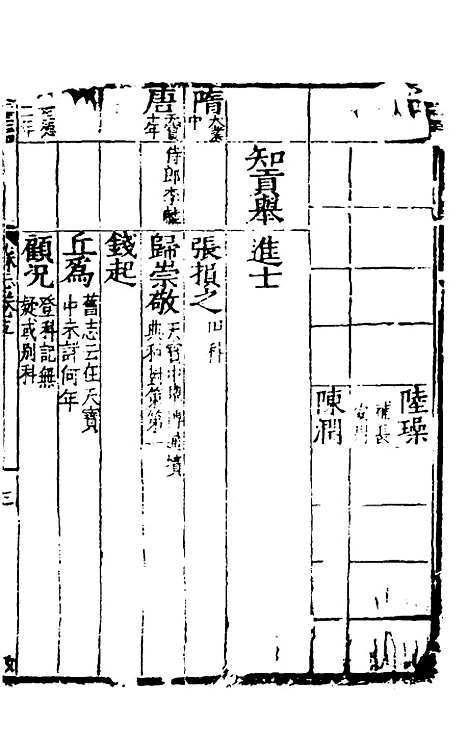 陸璪
補長
陳潤
知貢舉 進士
隋 大業中
張損之
唐 天寶十年 侍郎李麟
歸崇敬 天寶中舉博通墳典科對策第一
錢起
丘為 舊志云在天寶中未詳何年
至德二年
顧況 登科記無疑或别科
三